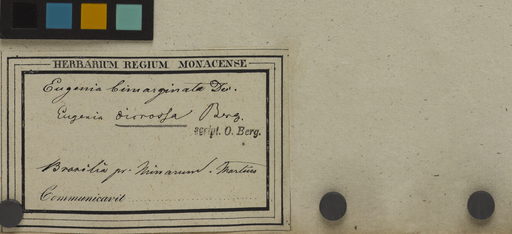 HERBARIUM REGIUM MONACENSE
Eugenia bimarginata Dc.
Eugenia Berg.
script. O. Berg.
Brasilia pr. Minarum. Martius
Communicavit